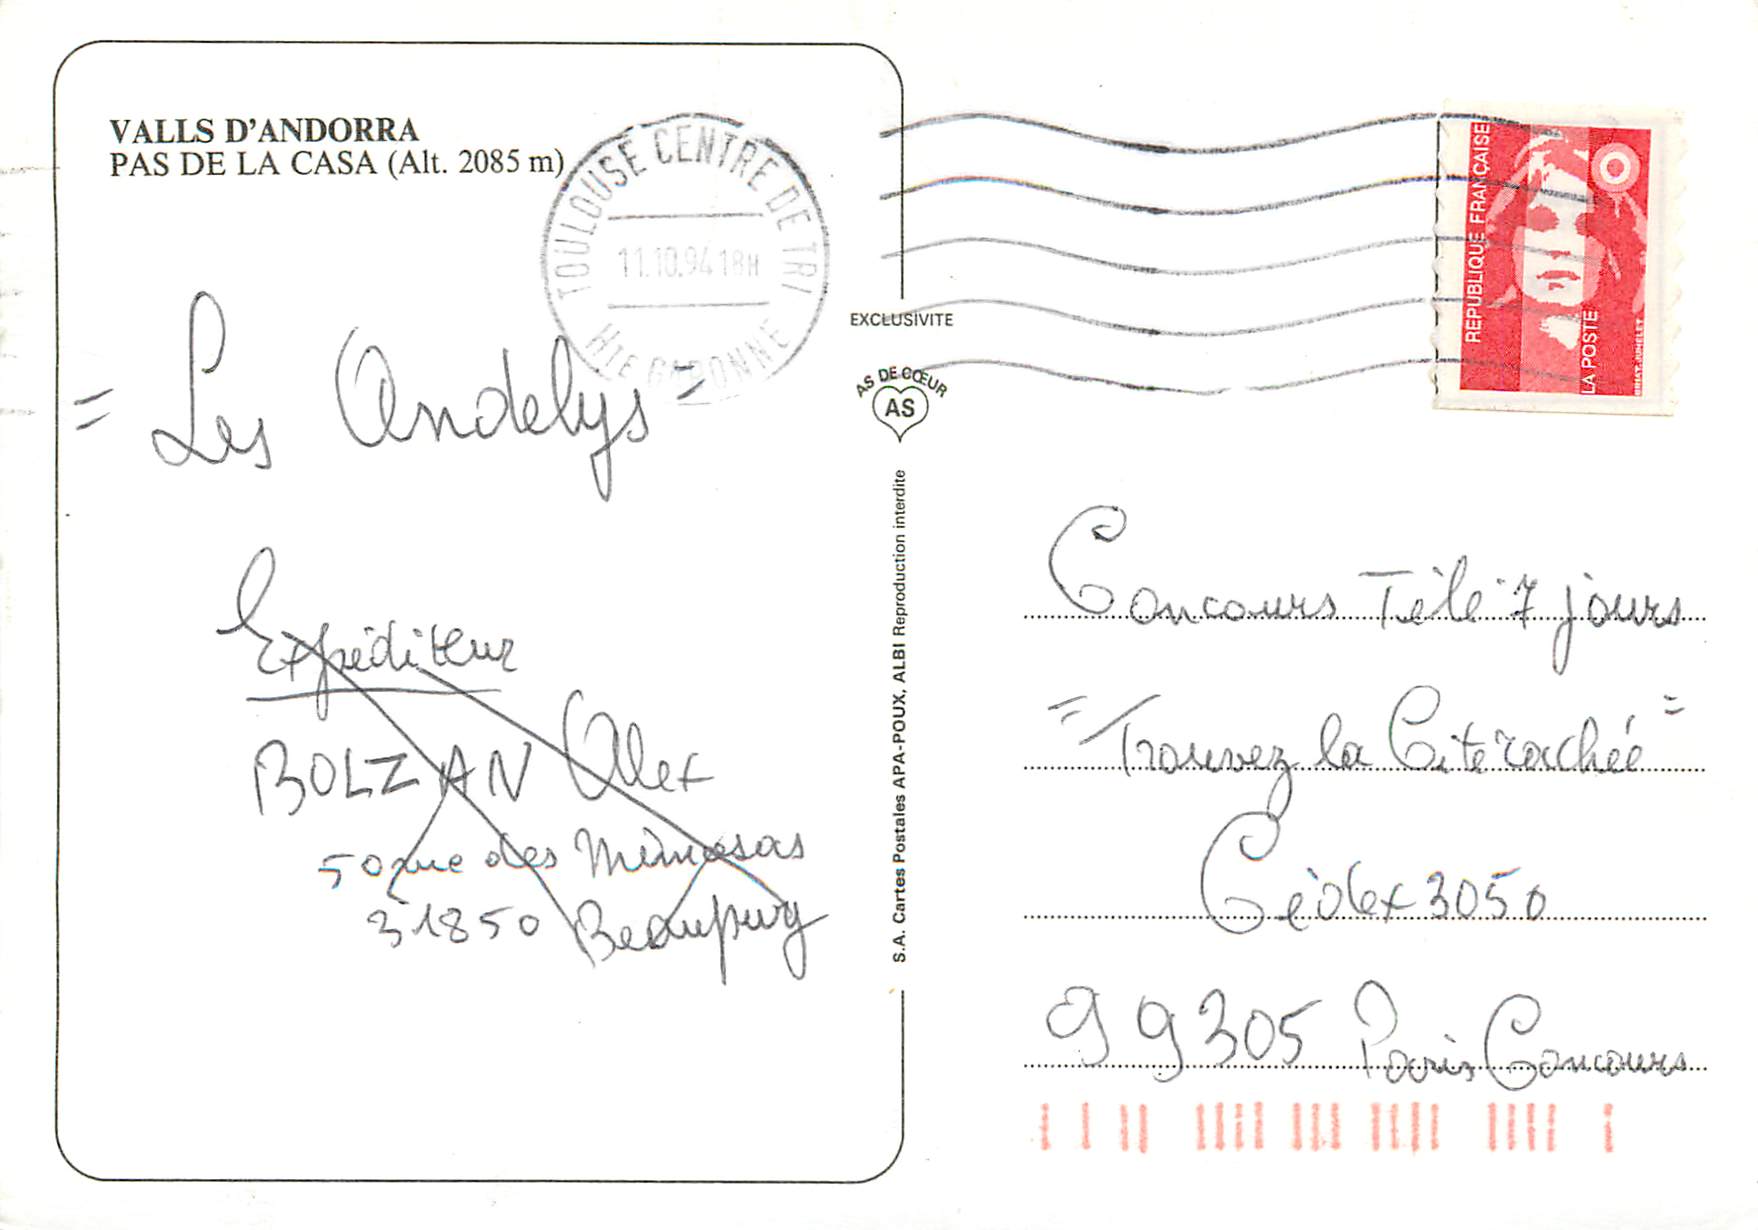 VALLS D'ANDORRA
PAS DE LA CASA (Alt. 2085 m)
TOULOUSE CENTRE DE TRI
11.10.94 18H
HTE GARONNE
= Les Andelys =
Expéditeur
BOLZAN Alex
50 rue des Mimosas
31850 Beaupuy
EXCLUSIVITE
AS DE CŒUR
AS
S.A. Cartes Postales APA-POUX, ALBI Reproduction interdite
REPUBLIQUE FRANÇAISE
LA POSTE
BRIAT JUMELET
Concours Télé 7 jours
"Trouvez la Cité cachée"
Cédex 3050
99305 Paris Concours